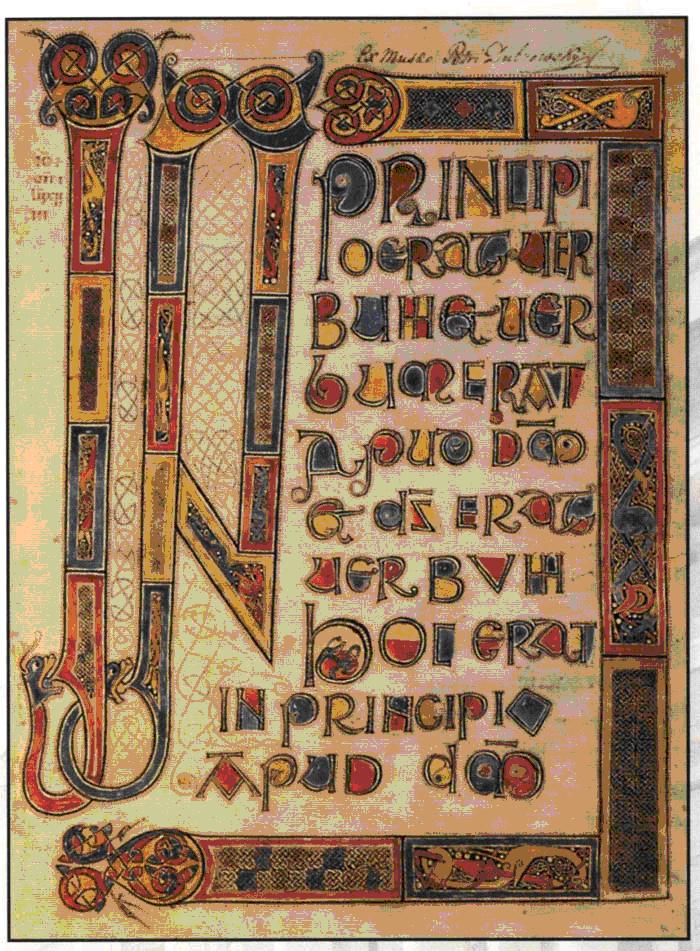 Ex Musaeo Petri Dubrowsky
IN PRINCIPI
O ERAT UER
BUM & UER
BUM ERAT
APUD D̄M
& DS̄ ERAT
UERBUM
HOC ERAT
IN PRINCIPIO
APUD D̄M